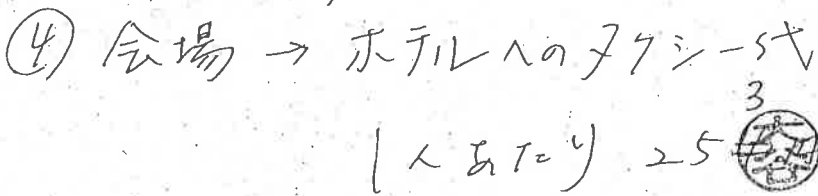 ④ 会場 → ホテルへのタクシー代
1人あたり 25
3